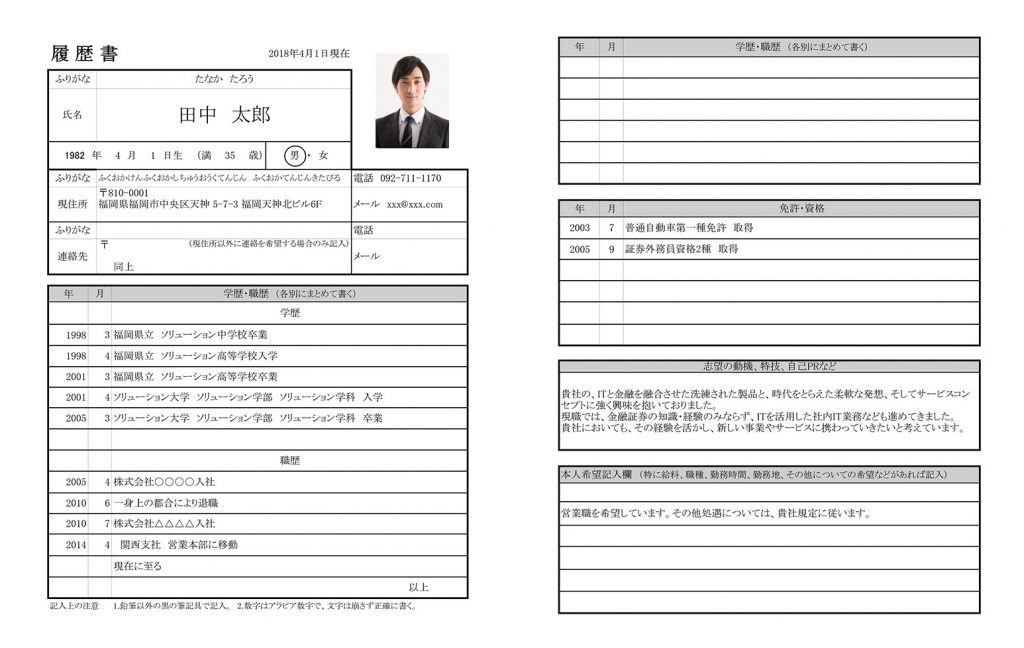 履歴書
2018年4月1日現在
ふりがな たなか たろう
氏名 田中 太郎
1982 年 4 月 1 日生 (満 35 歳) 男・女
ふりがな ふくおかけんふくおかしちゅうおうくてんじん ふくおかてんじんきたびる 電話 092-711-1170
現住所 〒810-0001
福岡県福岡市中央区天神 5-7-3 福岡天神北ビル6F メール xxx@xxx.com
ふりがな 電話
連絡先 〒 (現住所以外に連絡を希望する場合のみ記入) メール
同上
年 月 学歴・職歴 (各別にまとめて書く)
学歴
1998 3 福岡県立 ソリューション中学校卒業
1998 4 福岡県立 ソリューション高等学校入学
2001 3 福岡県立 ソリューション高等学校卒業
2001 4 ソリューション大学 ソリューション学部 ソリューション学科 入学
2005 3 ソリューション大学 ソリューション学部 ソリューション学科 卒業
職歴
2005 4 株式会社○○○○入社
2010 6 一身上の都合により退職
2010 7 株式会社△△△△入社
2014 4 関西支社 営業本部に移動
現在に至る
以上
記入上の注意 1.鉛筆以外の黒の筆記具で記入。 2.数字はアラビア数字で、文字は崩さず正確に書く。
年 月 学歴・職歴 (各別にまとめて書く)
年 月 免許・資格
2003 7 普通自動車第一種免許 取得
2005 9 証券外務員資格2種 取得
志望の動機、特技、自己PRなど
貴社の、ITと金融を融合させた洗練された製品と、時代をとらえた柔軟な発想、そしてサービスコン
セプトに強く興味を抱いておりました。
現職では、金融証券の知識・経験のみならず、ITを活用した社内IT業務なども進めてきました。
貴社においても、その経験を活かし、新しい事業やサービスに携わっていきたいと考えています。
本人希望記入欄 (特に給料、職種、勤務時間、勤務地、その他についての希望などがあれば記入)
営業職を希望しています。その他処遇については、貴社規定に従います。